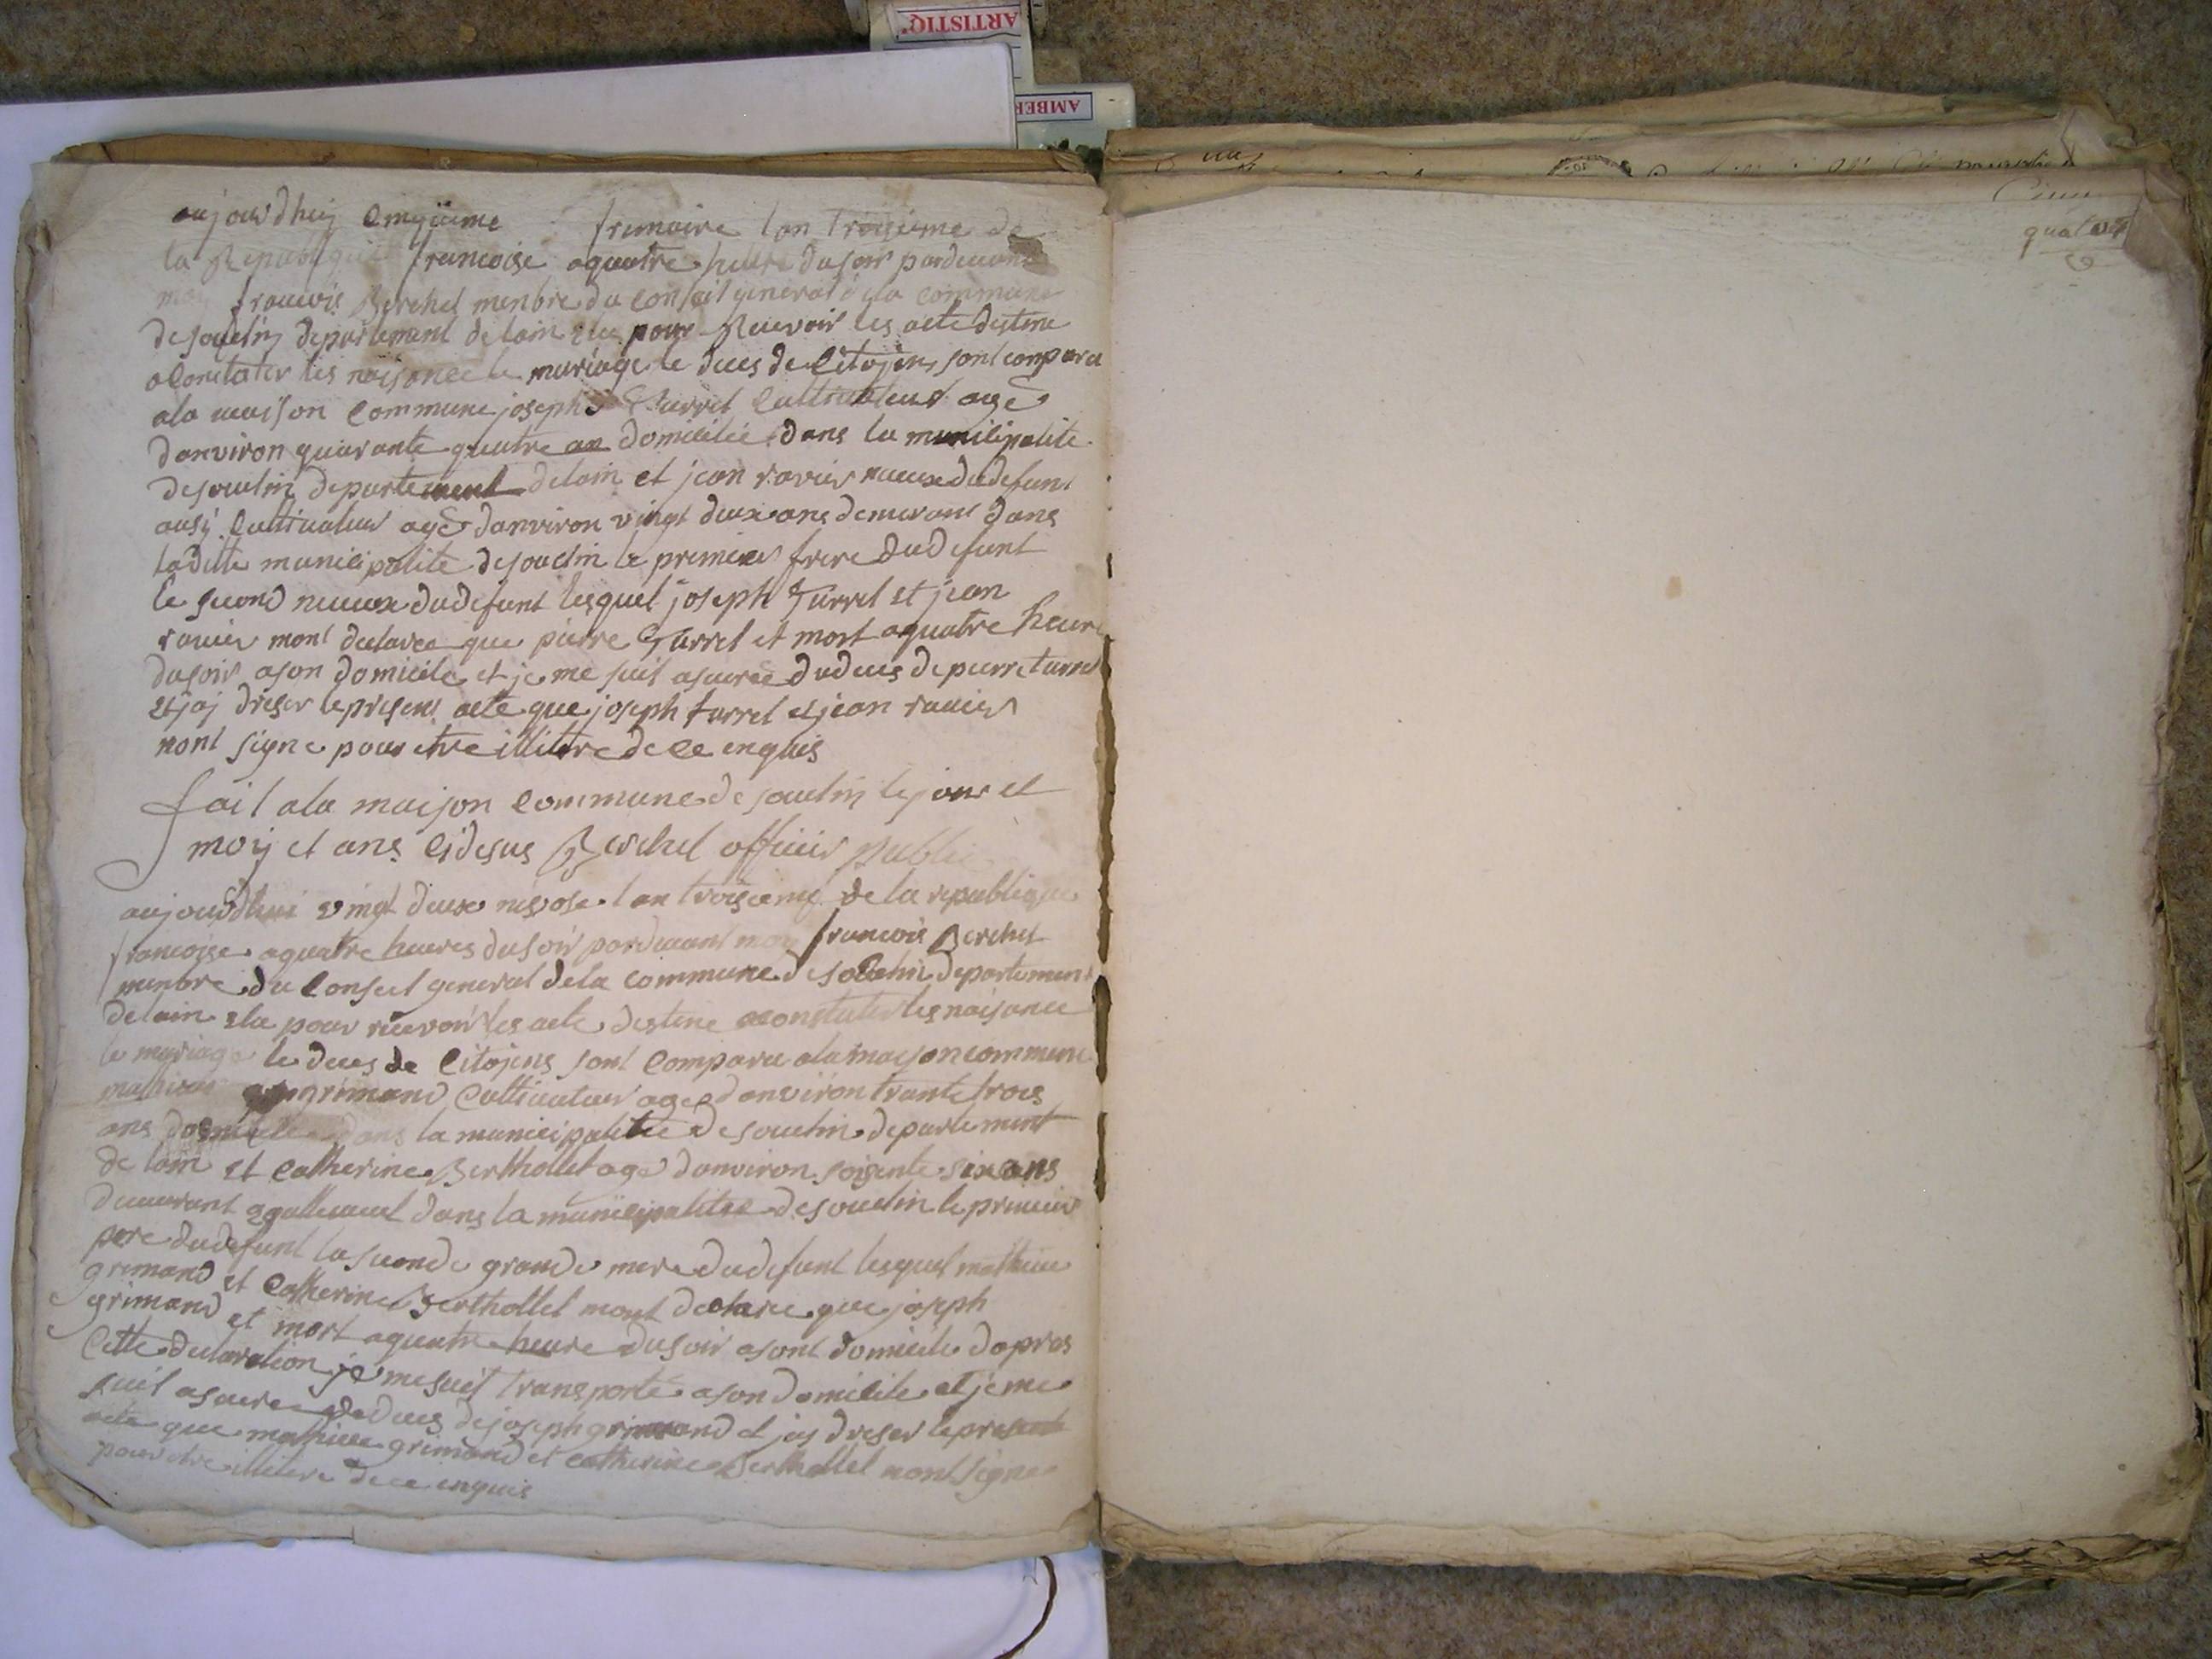 ARTISTIQ'
AMBER
aujourdhuij cinqiieme frimaire lan troisieme de
la Republique francoise aquatre heure dusoir pardevant
moy francois Berchet menbre du conseil general dela commune
desouclin departement delain elu pour Recevoir les acte destine
aconstater les naisance le mariage le deces de Citojens sont comparu
ala maison commune joseph Turrel Cultivateur age
danviron quarante quatre an domicilié dans la municipalite
desouclin departement delain et jean ravier neveux dudefunt
ausij Cultivateur agé danviron vingt deux ans demurant dans
laditte municipalite desouclin le premier frere dudefunt
le second neveux dudefunt lesquel joseph Turrel et jean
ravier mont declaree que pierre Turrel et mort aquatre heure
dusoir ason domicile et je me suit asuree dudeces de pierre turrel
et jaj dreser le presens acte que joseph turrel et jean ravier
nont signe pour etre illittere de ce enquis
fait ala maison commune de souclin le jour et
moij et ans cidesus Berchet officier public
aujourdhui vingt deux nivose lan troisieme de la republique
francoise aquatre heures dusoir pardevant moy francois Berchet
menbre du Conseil general dela commune desouclin departement
delain elu pour recevoir les acte destine aconstater les naisance
le mariage le deces de Citojens sont comparu ala maison commune
mathieu grimand Cultivateur age danviron trante trois
ans domicile dans la municipalitee desouclin departement
de lain et catherine Berthollet age danviron soisente six ans
demeurant egallement dans la municipalitee desouclin le premier
pere dudefunt la seconde grande mere dudefunt lesquel mathieu
grimand et Catherine Berthollet mont declare que joseph
grimand et mort aquatre heure dusoir asont domicile dapres
Cette declaration je mesuit transporte ason domicile et je me
suit asuree dudeces de joseph grimand et jaj dreser le present
acte que mathieu grimand et catherine Berthollet nont signe
pour etre illetere de ce enquis